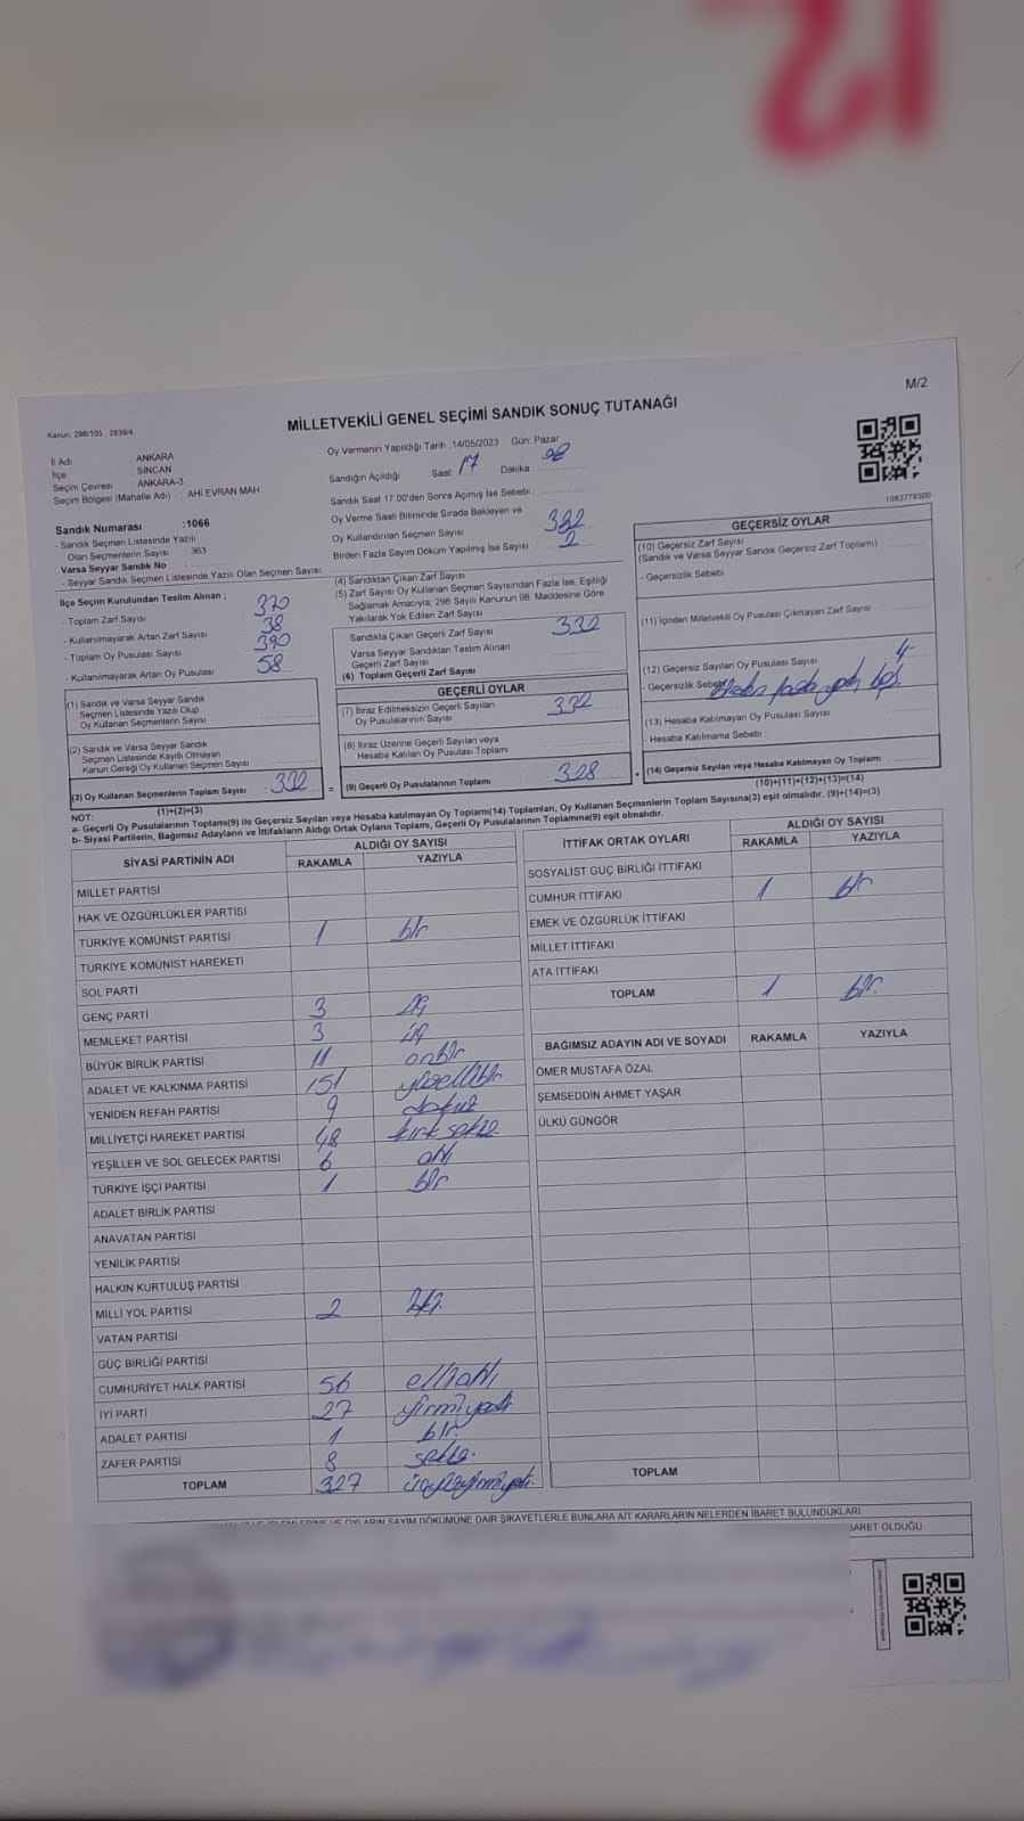 12
M/2
Kanun: 298/105 , 2839/4
MİLLETVEKİLİ GENEL SEÇİMİ SANDIK SONUÇ TUTANAĞI
İl Adı ANKARA
İlçe SİNCAN
Seçim Çevresi ANKARA-3
Seçim Bölgesi (Mahalle Adı) AHİ EVRAN MAH
Oy Vermenin Yapıldığı Tarih :14/05/2023 Gün: Pazar
Sandığın Açıldığı Saat: 17 Dakika
Sandık Saat 17:00'den Sonra Açılmış İse Sebebi :
Oy Verme Saati Bitiminde Sırada Bekleyen ve
Oy Kullandırılan Seçmen Sayısı 332
Birden Fazla Sayım Döküm Yapılmış İse Sayısı 2
Sandık Numarası :1066
- Sandık Seçmen Listesinde Yazılı
Olan Seçmenlerin Sayısı 363
Varsa Seyyar Sandık No
- Seyyar Sandık Seçmen Listesinde Yazılı Olan Seçmen Sayısı
İlçe Seçim Kurulundan Teslim Alınan ;
- Toplam Zarf Sayısı 370
- Kullanılmayarak Artan Zarf Sayısı 38
- Toplam Oy Pusulası Sayısı 390
- Kullanılmayarak Artan Oy Pusulası 58
(1) Sandık ve Varsa Seyyar Sandık
Seçmen Listesinde Yazılı Olup
Oy Kullanan Seçmenlerin Sayısı
(2) Sandık ve Varsa Seyyar Sandık
Seçmen Listesinde Kayıtlı Olmayan
Kanun Gereği Oy Kullanan Seçmen Sayısı
(3) Oy Kullanan Seçmenlerin Toplam Sayısı 332
(1)+(2)=(3)
(4) Sandıktan Çıkan Zarf Sayısı
(5) Zarf Sayısı Oy Kullanan Seçmen Sayısından Fazla İse, Eşitliği
Sağlamak Amacıyla, 298 Sayılı Kanunun 98. Maddesine Göre
Yakılarak Yok Edilen Zarf Sayısı
Sandıkta Çıkan Geçerli Zarf Sayısı 332
Varsa Seyyar Sandıktan Teslim Alınan
Geçerli Zarf Sayısı
(6) Toplam Geçerli Zarf Sayısı
GEÇERLİ OYLAR
(7) İtiraz Edilmeksizin Geçerli Sayılan
Oy Pusulalarının Sayısı 332
(8) İtiraz Üzerine Geçerli Sayılan veya
Hesaba Katılan Oy Pusulası Toplamı
(9) Geçerli Oy Pusulalarının Toplamı 328
GEÇERSİZ OYLAR
(10) Geçersiz Zarf Sayısı
(Sandık ve Varsa Seyyar Sandık Geçersiz Zarf Toplamı)
- Geçersizlik Sebebi
(11) İçinden Milletvekili Oy Pusulası Çıkmayan Zarf Sayısı
(12) Geçersiz Sayılan Oy Pusulası Sayısı 4
- Geçersizlik Sebebi
(13) Hesaba Katılmayan Oy Pusulası Sayısı
- Hesaba Katılmama Sebebi
(14) Geçersiz Sayılan veya Hesaba Katılmayan Oy Toplamı
(10)+(11)+(12)+(13)=(14)
NOT:
a- Geçerli Oy Pusulalarının Toplamı(9) ile Geçersiz Sayılan veya Hesaba katılmayan Oy Toplamı(14) Toplamları, Oy Kullanan Seçmenlerin Toplam Sayısına(3) eşit olmalıdır. (9)+(14)=(3)
b- Siyasi Partilerin, Bağımsız Adayların ve İttifakların Aldığı Ortak Oyların Toplamı, Geçerli Oy Pusulalarının Toplamına(9) eşit olmalıdır.
SİYASİ PARTİNİN ADI ALDIĞI OY SAYISI
RAKAMLA YAZIYLA
MİLLET PARTİSİ
HAK VE ÖZGÜRLÜKLER PARTİSİ
TÜRKİYE KOMÜNİST PARTİSİ 1 bir
TÜRKİYE KOMÜNİST HAREKETİ
SOL PARTİ
GENÇ PARTİ 3 üç
MEMLEKET PARTİSİ 3 üç
BÜYÜK BİRLİK PARTİSİ 11 onbir
ADALET VE KALKINMA PARTİSİ 151 yüzellibir
YENİDEN REFAH PARTİSİ 9 dokuz
MİLLİYETÇİ HAREKET PARTİSİ 48 kırk sekiz
YEŞİLLER VE SOL GELECEK PARTİSİ 6 altı
TÜRKİYE İŞÇİ PARTİSİ 1 bir
ADALET BİRLİK PARTİSİ
ANAVATAN PARTİSİ
YENİLİK PARTİSİ
HALKIN KURTULUŞ PARTİSİ
MİLLİ YOL PARTİSİ 2 iki
VATAN PARTİSİ
GÜÇ BİRLİĞİ PARTİSİ
CUMHURİYET HALK PARTİSİ 56 elli altı
İYİ PARTİ 27 yirmi yedi
ADALET PARTİSİ 1 bir
ZAFER PARTİSİ 8 sekiz
TOPLAM 327 üçyüzyirmiyedi
İTTİFAK ORTAK OYLARI ALDIĞI OY SAYISI
RAKAMLA YAZIYLA
SOSYALİST GÜÇ BİRLİĞİ İTTİFAKI
CUMHUR İTTİFAKI 1 bir
EMEK VE ÖZGÜRLÜK İTTİFAKI
MİLLET İTTİFAKI
ATA İTTİFAKI
TOPLAM 1 bir
BAĞIMSIZ ADAYIN ADI VE SOYADI RAKAMLA YAZIYLA
ÖMER MUSTAFA ÖZAL
ŞEMSEDDİN AHMET YAŞAR
ÜLKÜ GÜNGÖR
TOPLAM
OYLARIN SAYIM DÖKÜMÜNE DAİR ŞİKAYETLERLE BUNLARA AİT KARARLARIN NELERDEN İBARET BULUNDUKLARI
İBARET OLDUĞU